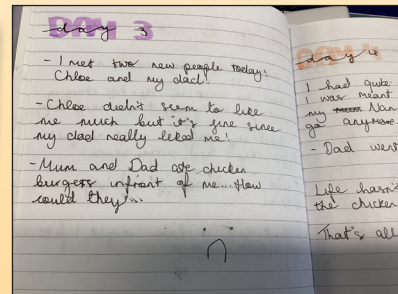 day 3
- I met two new people today!
Chloe and my dad!
- Chloe didn't seem to like
me much but it's fine since
my dad really liked me!
- Mum and Dad ate chicken
burgers infront of me.... How
could they...
day 4
I had quite
I was meant
my Nan
go anymore.
- Dad went
Life hasn't
the chicken
That's all